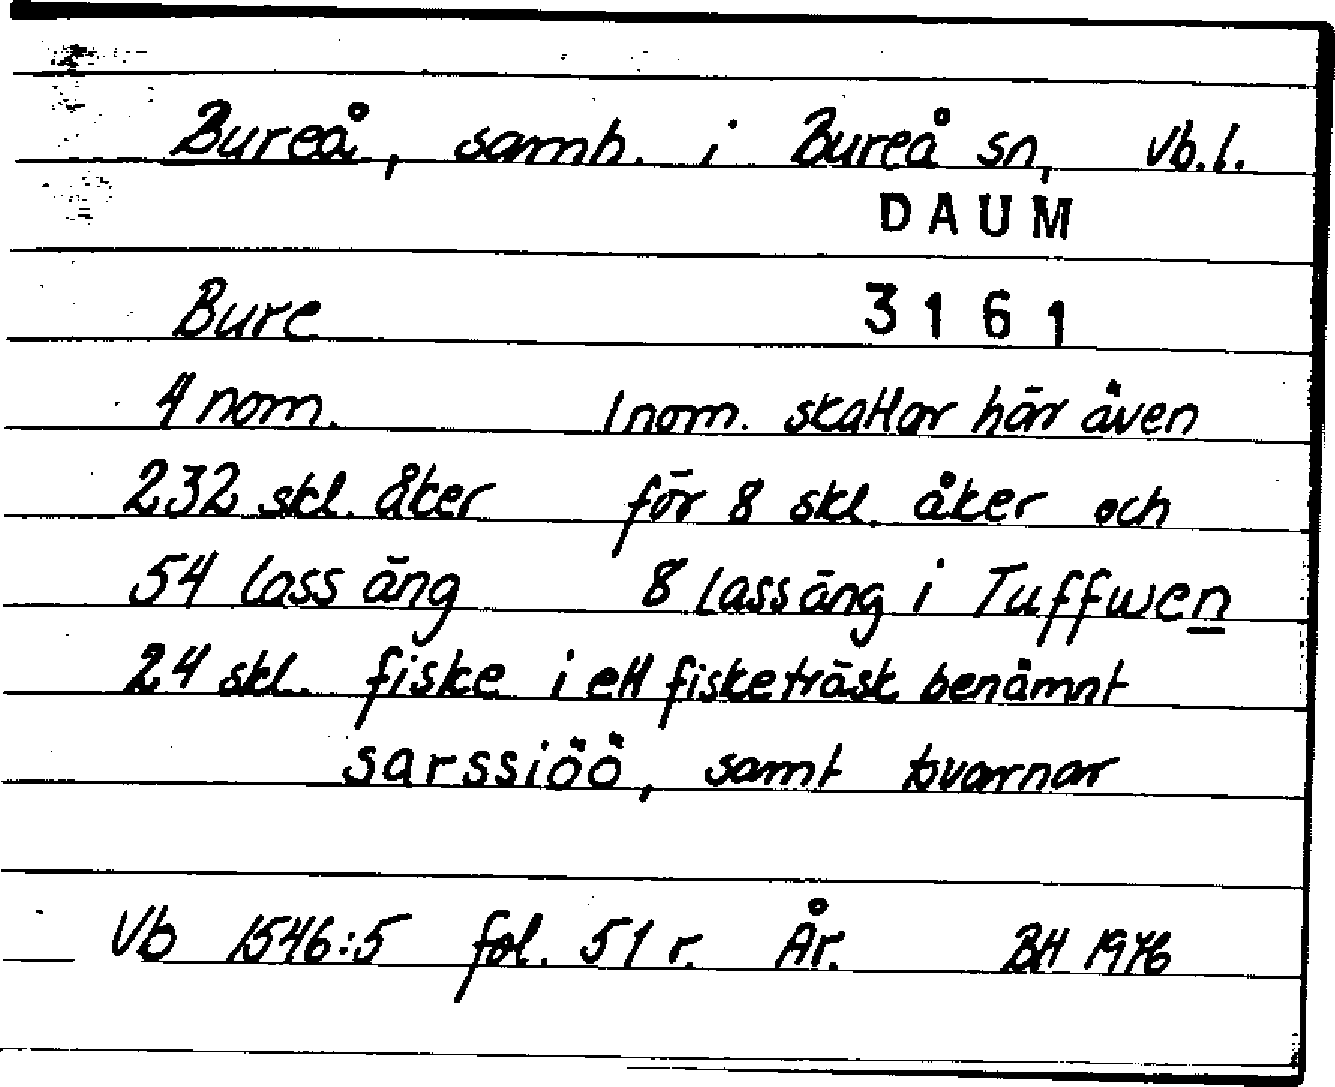 Bureå, samh. i Bureå sn, Vb.l.
DAUM
Bure 3161
4 nom. 1 nom. skattar här även
232 skl. åker för 8 skl. åker och
54 lass äng 8 lass äng i Tuffwen
24 skl. fiske i ett fisketräsk benämnt
sarssiöö, samt kvarnar
Vb 1546:5 fol. 51 r. År. BH 1976